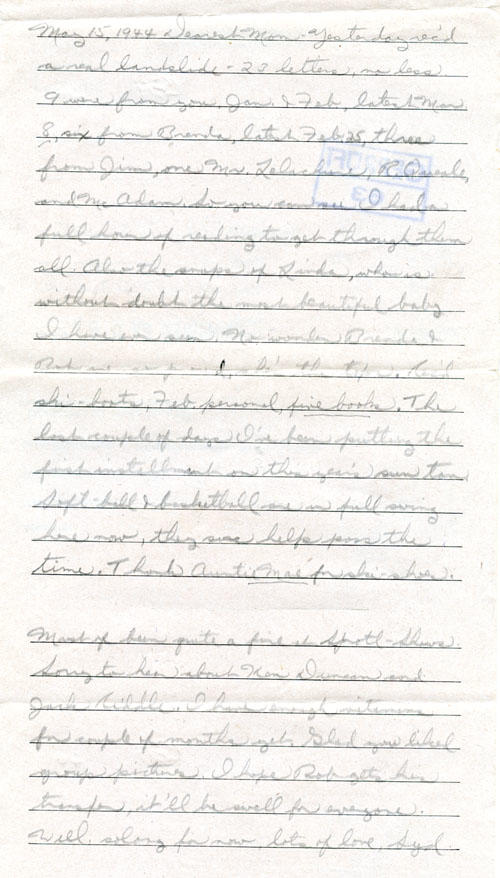 May 15, 1944 Dearest Mom - Yesterday rec'd
a real landslide - 23 letters, no less
9 were from you, Jan. & Feb., latest Mar.
8, six from Brenda, latest Feb 25, three
from Jim, one Mr. R. Queale,
and Mc Adam. So you can see I had a
full hour of reading to get through them
all. Also the snaps of Linda, who is
without doubt the most beautiful baby
I have ever seen. No wonder Brenda &
Bob are so proud, she's the tops. Rec'd
ski-boots, Feb. personal, five books. The
last couple of days I've been putting the
first installment on this year's sun tan.
Soft-ball & basketball are in full swing
here now, they sure helps pass the
time. Thank Aunti Mae for ski-shoes.
Must of been quite a fire at Shaws.
Sorry to hear about Ken Duncan and
Jack Riddle. I have enough vitamins
for couple of months yet. Glad you liked
group pictures. I hope Bob gets his
transfer, it'll be swell for everyone.
Well, so long for now, lots of love, Syd.